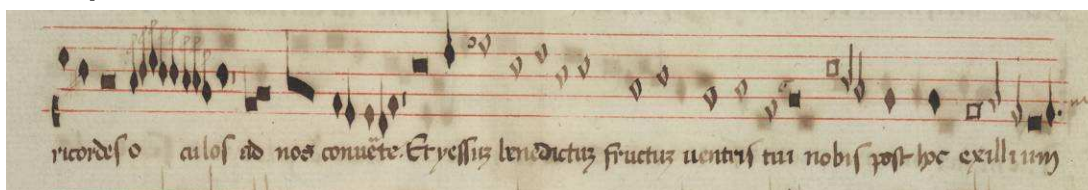 ricordes o culos ad nos convēte. Et yessuz benedictuz fructuz uentris tui nobis post hoc exillium